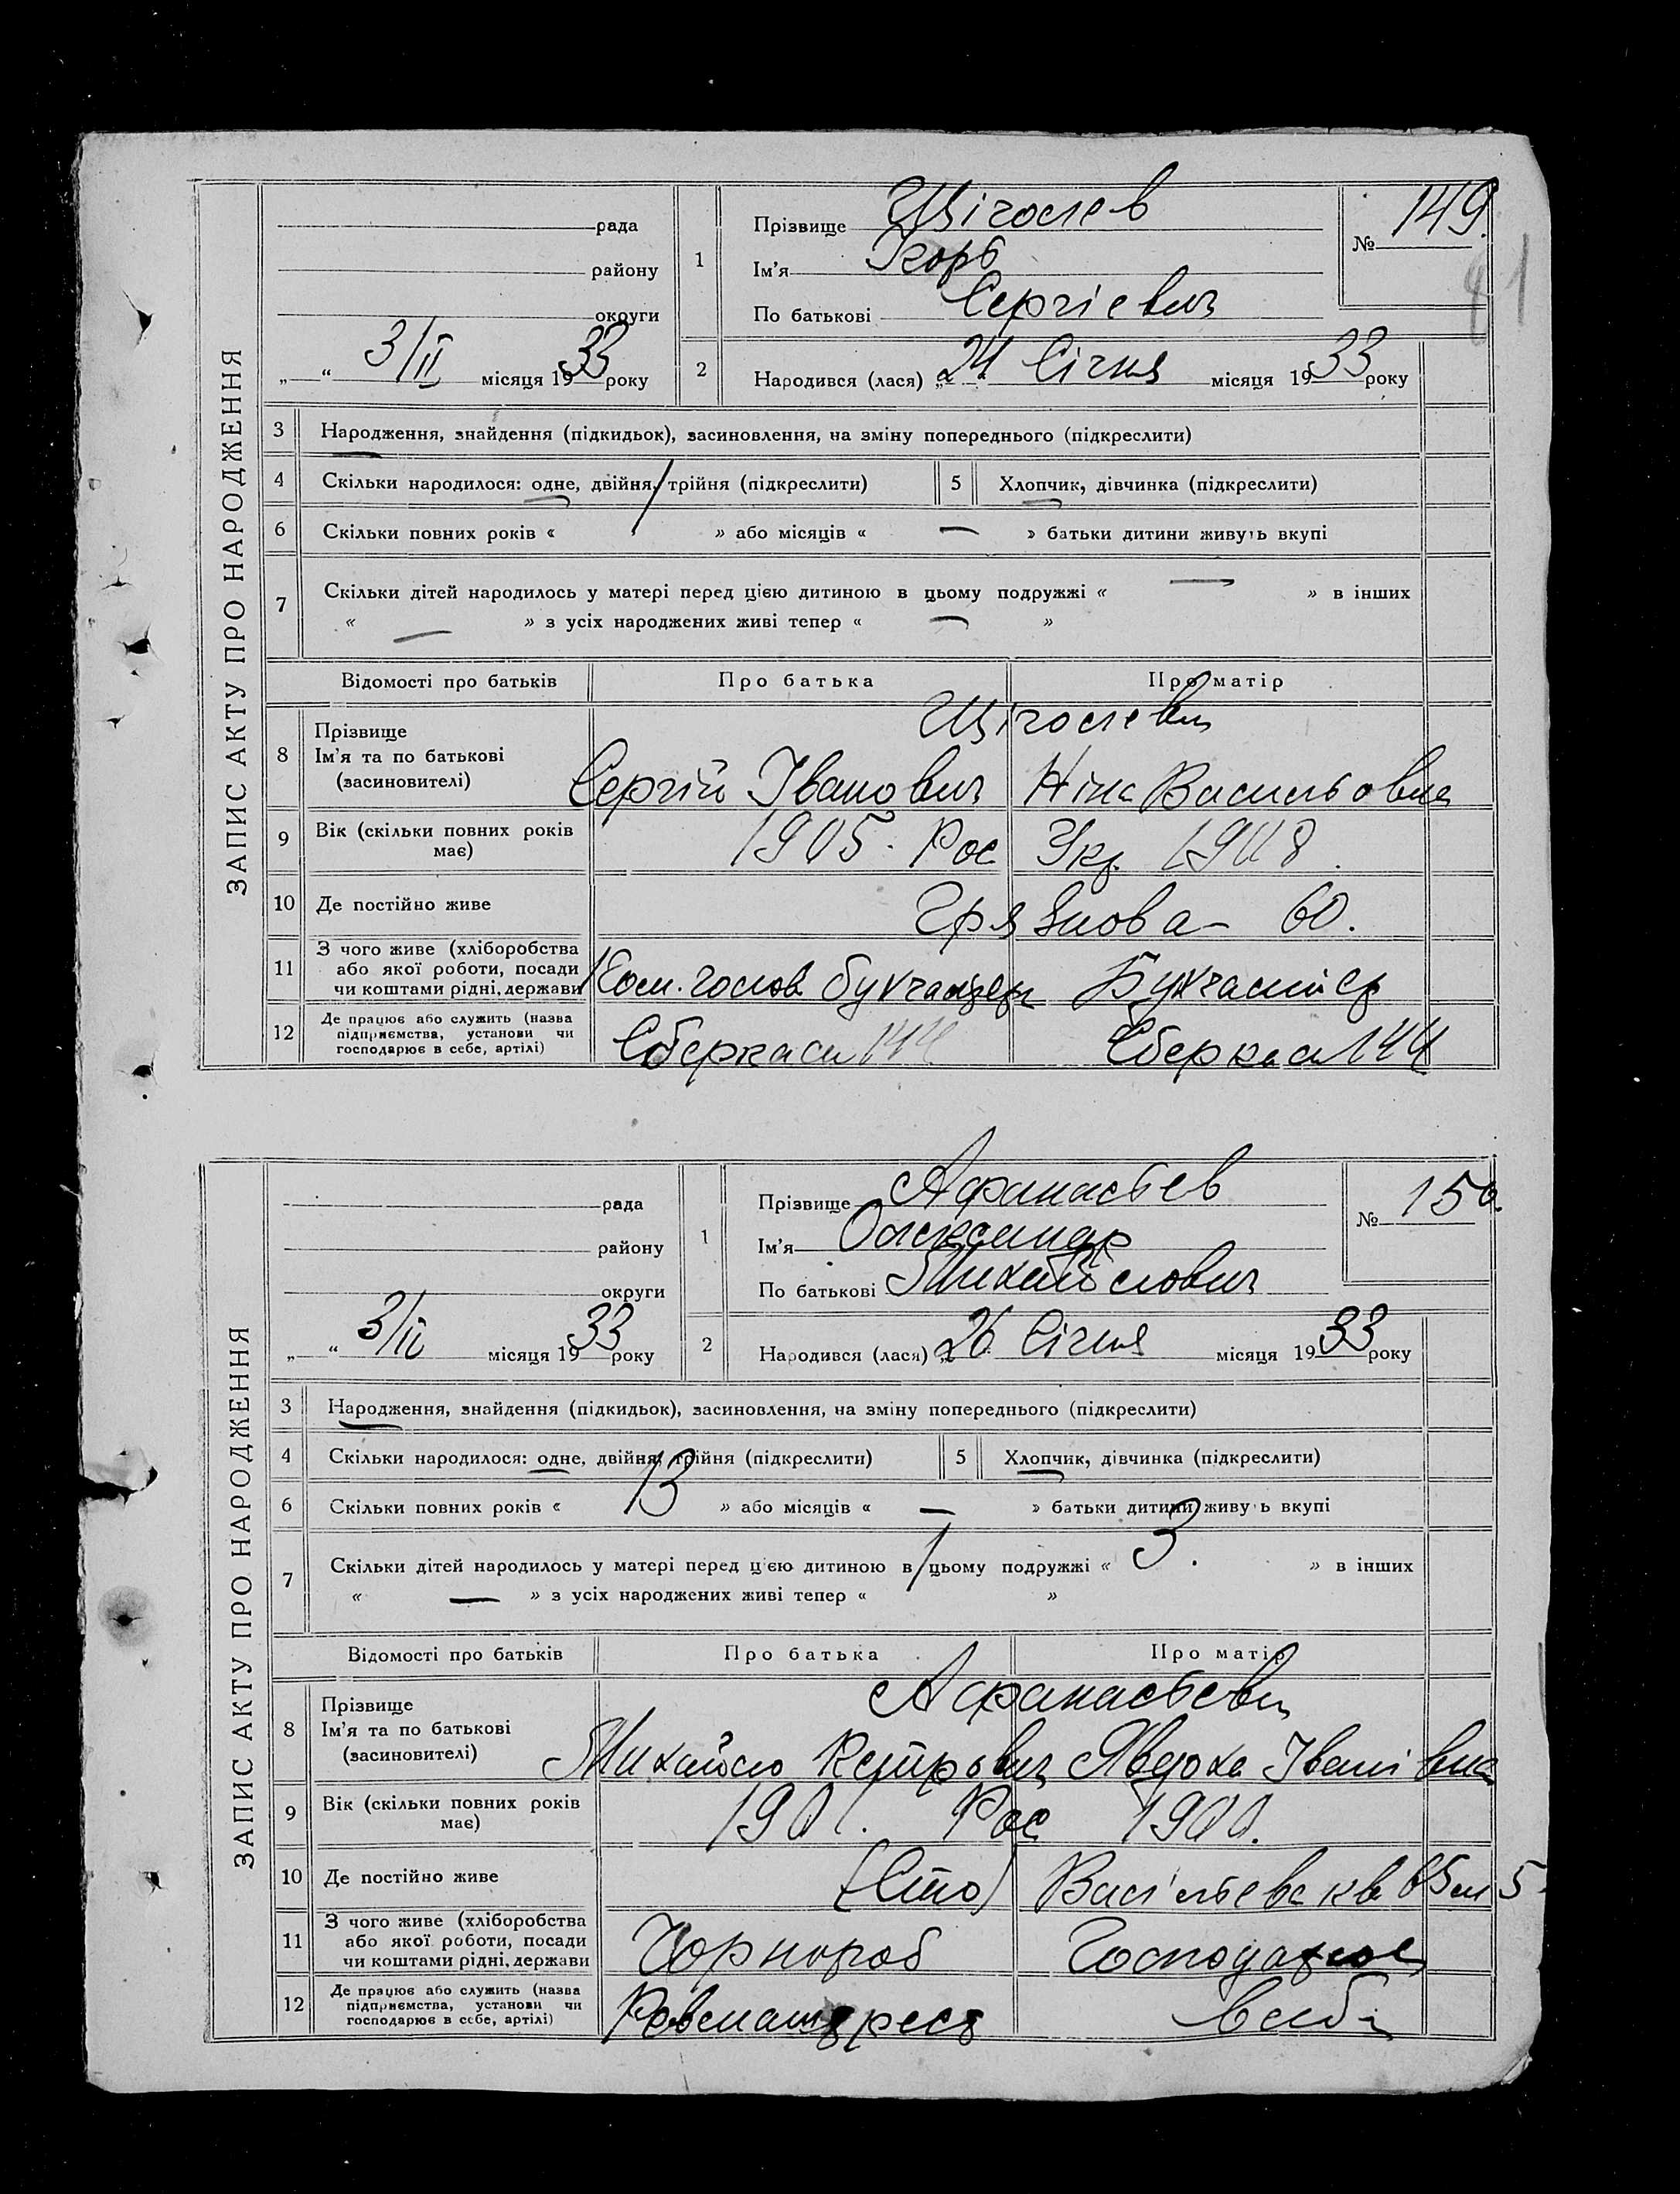 ЗАПИС АКТУ ПРО НАРОДЖЕННЯ
рада
району
округи
„ “ 3/II місяця 1933 року
1
Прізвище Щіголев
Ім'я Ігорь
По батькові Сергієвич
№ 149.
2
Народився (лася) „24 Січня місяця 1933 року
3 Народження, знайдення (підкидьок), засиновлення, на зміну попереднього (підкреслити)
4 Скільки народилося: одне, двійня, трійня (підкреслити) 5 Хлопчик, дівчинка (підкреслити)
6 Скільки повних років « / » або місяців « — » батьки дитини живуть вкупі
7 Скільки дітей народилось у матері перед цією дитиною в цьому подружжі « — » в інших
« — » з усіх народжених живі тепер « — »
Відомості про батьків Про батька Про матір
8 Прізвище
Ім'я та по батькові
(засиновителі)
Щіголеви
Сергій Іванович Ніна Васильовна
9 Вік (скільки повних років має) 1905. Рос Укр. 1908.
10 Де постійно живе Грязнова 60.
11 З чого живе (хліборобства
або якої роботи, посади
чи коштами рідні, держави
голов. бухгалтер Бухгалтер
12 Де працює або служить (назва
підприємства, установи чи
господарює в себе, артілі)
Сберкаса 144 Сберкаса 144
ЗАПИС АКТУ ПРО НАРОДЖЕННЯ
рада
району
округи
„ “ 3/II місяця 1933 року
1
Прізвище Афанасьев
Ім'я Олександр
По батькові Михайлович
№ 150.
2
Народився (лася) „26 Січня місяця 1933 року
3 Народження, знайдення (підкидьок), засиновлення, на зміну попереднього (підкреслити)
4 Скільки народилося: одне, двійня, трійня (підкреслити) 5 Хлопчик, дівчинка (підкреслити)
6 Скільки повних років « 13 » або місяців « — » батьки дитини живуть вкупі
7 Скільки дітей народилось у матері перед цією дитиною в цьому подружжі « 3. » в інших
« — » з усіх народжених живі тепер « »
Відомості про батьків Про батька Про матір
8 Прізвище
Ім'я та по батькові
(засиновителі)
Афанасьеви
Михайло Петрович Явдоха Іванівна
9 Вік (скільки повних років має) 1901. Рос 1900.
10 Де постійно живе Васільева кв
11 З чого живе (хліборобства
або якої роботи, посади
чи коштами рідні, держави
Чорнороб Господарює
12 Де працює або служить (назва
підприємства, установи чи
господарює в себе, артілі)
в себе